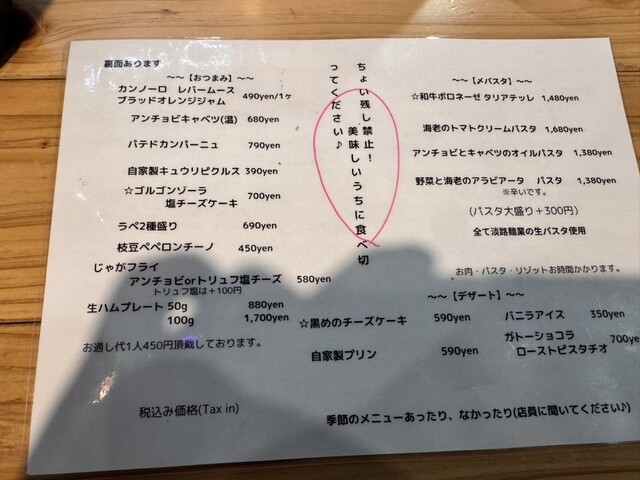 裏面あります
～～【おつまみ】～～
カンノーロ　レバームース
ブラッドオレンジジャム　490yen/1ヶ
アンチョビキャベツ(温)　680yen
パテドカンパーニュ　790yen
自家製キュウリピクルス　390yen
☆ゴルゴンゾーラ
塩チーズケーキ　700yen
ラペ2種盛り　690yen
枝豆ペペロンチーノ　450yen
じゃがフライ
アンチョビorトリュフ塩チーズ　580yen
トリュフ塩は＋100円
生ハムプレート 50g　880yen
100g　1,700yen
お通し代1人450円頂戴しております。
税込み価格(Tax in)
ちょい残し禁止！
美味しいうちに食べ切
ってください♪
～～【〆パスタ】～～
☆和牛ボロネーゼ タリアテッレ　1,480yen
海老のトマトクリームパスタ　1,680yen
アンチョビとキャベツのオイルパスタ　1,380yen
野菜と海老のアラビアータ　パスタ　1,380yen
※辛いです。
(パスタ大盛り＋300円)
全て淡路麺業の生パスタ使用
お肉・パスタ・リゾットお時間かかります。
～～【デザート】～～
☆黒めのチーズケーキ　590yen
自家製プリン　590yen
バニラアイス　350yen
ガトーショコラ
ローストピスタチオ　700ye
季節のメニューあったり、なかったり(店員に聞いてください♪)